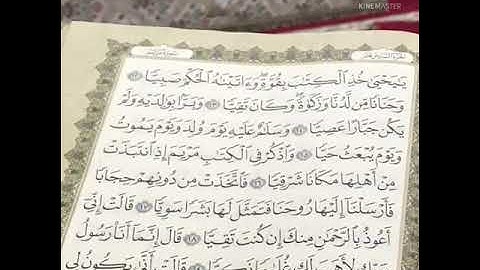 KINEMASTER
يَٰيَحْيَىٰ خُذِ ٱلْكِتَٰبَ بِقُوَّةٍۖ وَءَاتَيْنَٰهُ ٱلْحُكْمَ صَبِيًّا ١٢
وَحَنَانًا مِّن لَّدُنَّا وَزَكَوٰةًۖ وَكَانَ تَقِيًّا ١٣ وَبَرًّۢا بِوَٰلِدَيْهِ وَلَمْ
يَكُن جَبَّارًا عَصِيًّا ١٤ وَسَلَٰمٌ عَلَيْهِ يَوْمَ وُلِدَ وَيَوْمَ يَمُوتُ
وَيَوْمَ يُبْعَثُ حَيًّا ١٥ وَٱذْكُرْ فِى ٱلْكِتَٰبِ مَرْيَمَ إِذِ ٱنتَبَذَتْ
مِنْ أَهْلِهَا مَكَانًا شَرْقِيًّا ١٦ فَٱتَّخَذَتْ مِن دُونِهِمْ حِجَابًا
فَأَرْسَلْنَآ إِلَيْهَا رُوحَنَا فَتَمَثَّلَ لَهَا بَشَرًا سَوِيًّا ١٧ قَالَتْ إِنِّىٓ
أَعُوذُ بِٱلرَّحْمَٰنِ مِنكَ إِن كُنتَ تَقِيًّا ١٨ قَالَ إِنَّمَآ أَنَا۠ رَسُولُ
رَبِّكِ لِأَهَبَ لَكِ غُلَٰمًا زَكِيًّا ١٩ قَالَتْ أَنَّىٰ يَكُونُ لِى